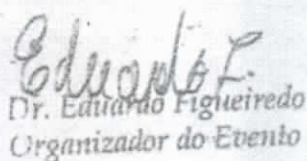 Eduardo F.
Dr. Eduardo Figueiredo
Organizador do Evento